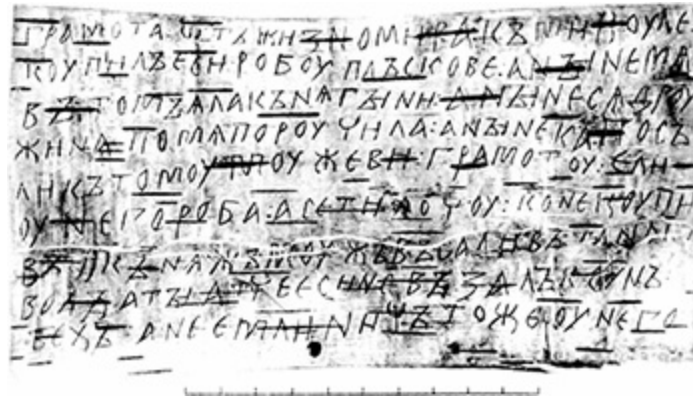 ГРАМОТА:ѠТЪЖИЗНОМИРАКЪМИКОУЛЕ
КОУПИЛЪЕСИРОБОУПЛЪСКОВЕ:АНЫНЕМѦ
ВЪТОМЪѦЛАКЪНѦГЫНИ:АНЫНЕСѦДРОУ
ЖИНАПОМѦПОРОУЧИЛА:АНЫНЕКАПОСЪ
ЛИКЪТОМОУМОУЖЕВИ:ГРАМОТОУ:ЕЛИ
ОУНЕГОРОБА:АСЕТИХОЧОУ:КОНЕКОУПИ
ВЪИКЪНѦЖЪМОУЖЪВЪСАДИВЪТАНАСЪ
ВОДЫАТЫАТЧЕЕСИНЕВЪЗАЛЪКОУНЪ
ТЕХЪАНЕЕМЛИНИЧЪТОЖЕОУНЕГО